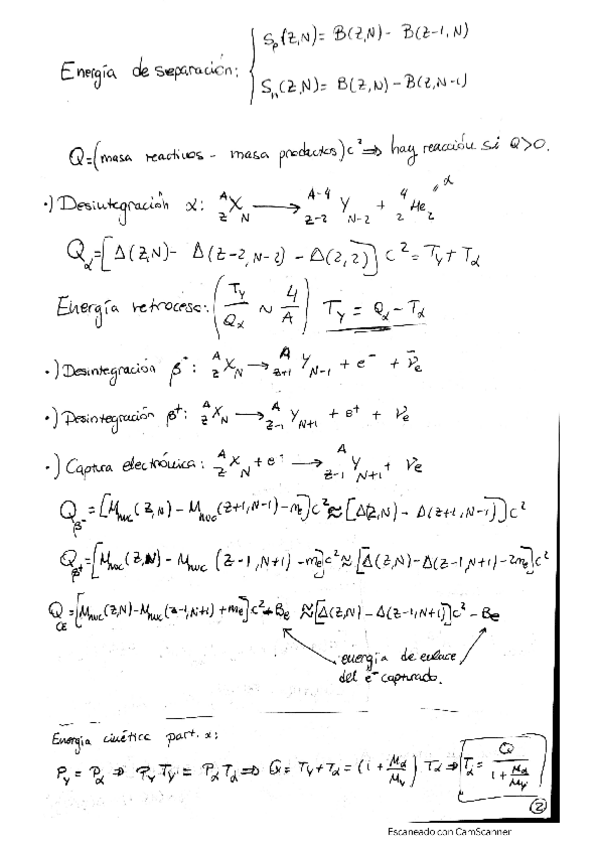 Energía de separación: { Sp(Z,N) = B(Z,N) - B(Z-1, N)
Sn(Z,N) = B(Z,N) - B(Z,N-1)
Q = (masa reactivos - masa productos)c² ⇒ hay reacción si Q>0.
·) Desintegración α: ᴬ_Z X_N ⟶ ᴬ⁻⁴_Z-2 Y_N-2 + ⁴_2 He_2 " α
Q_α = [Δ(Z,N) - Δ(Z-2, N-2) - Δ(2,2)] c² = T_Y + T_α
Energía retroceso: (T_Y/Q_α ~ 4/A) T_Y = Q_α - T_α
·) Desintegración β⁻: ᴬ_Z X_N ⟶ ᴬ_Z+1 Y_N-1 + e⁻ + ν̄_e
·) Desintegración β⁺: ᴬ_Z X_N ⟶ ᴬ_Z-1 Y_N+1 + e⁺ + ν_e
·) Captura electrónica: ᴬ_Z X_N + e⁻ ⟶ ᴬ_Z-1 Y_N+1 + ν_e
Q_β⁻ = [M_nuc(Z,N) - M_nuc(Z+1,N-1) - m_e]c² ≈ [Δ(Z,N) - Δ(Z+1,N-1)]c²
Q_β⁺ = [M_nuc(Z,N) - M_nuc(Z-1,N+1) - m_e]c² ≈ [Δ(Z,N) - Δ(Z-1,N+1) - 2m_e]c²
Q_CE = [M_nuc(Z,N) - M_nuc(Z-1,N+1) + m_e]c² - B_e ≈ [Δ(Z,N) - Δ(Z-1,N+1)]c² - B_e
energía de enlace
del e⁻ capturado.
Energía cinética part. α:
P_Y = P_α ⇒ P_Y T_Y = P_α T_α ⇒ Q = T_Y + T_α = (1 + M_α/M_Y) T_α ⇒ T_α = Q/(1 + M_α/M_Y)
2
Escaneado con CamScanner